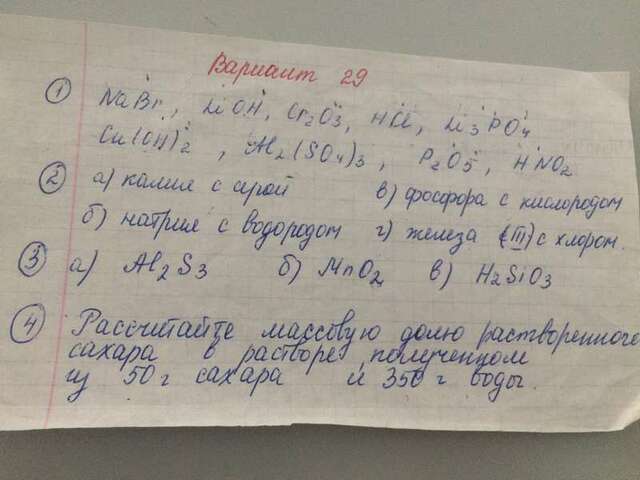 Вариант 29
① NaBr, LiOH, Cr2O3, HCl, Li3PO4
Cu(OH)2, Al2(SO4)3, P2O5, HNO2
② а) калия с серой в) фосфора с кислородом
б) натрия с водородом г) железа (III) с хлором.
③ а) Al2S3 б) MnO2 в) H2SiO3
④ Рассчитайте массовую долю растворенного
сахара в растворе, полученном
из 50 г сахара и 350 г воды.